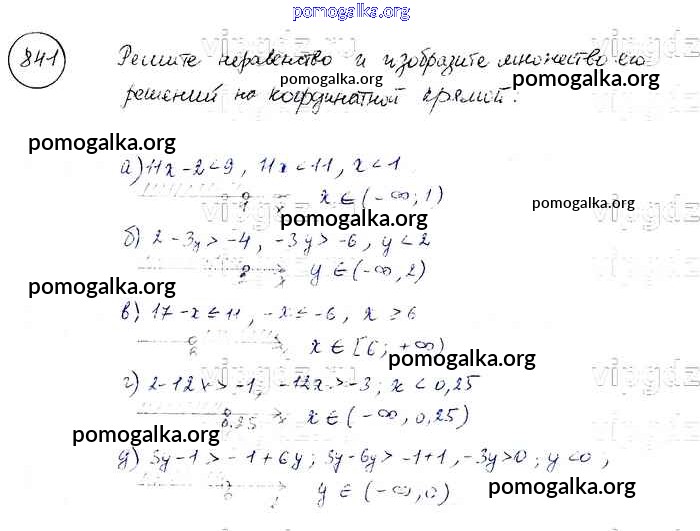 pomogalka.org
841
Решите неравенство и изобразите множество его
pomogalka.org pomogalka.org
решений на координатной прямой:
pomogalka.org
а) 11x - 2 < 9 , 11x < 11 , x < 1
0 x ∈ (-∞; 1) pomogalka.org
1 x
pomogalka.org
б) 2 - 3y > -4 , -3y > -6 , y < 2
2 y ∈ (-∞, 2)
pomogalka.org
в) 17 - x ≤ 11, -x ≤ -6, x ≥ 6
6 x ∈ [6; +∞)
pomogalka.org
г) 2 - 12x > -1, -12x > -3; x < 0,25
0,25 x ∈ (-∞, 0,25)
pomogalka.org
д) 3y - 1 > -1 + 6y; 3y - 6y > -1 + 1, -3y > 0; y < 0,
0 y ∈ (-∞, 0) pomogalka.org